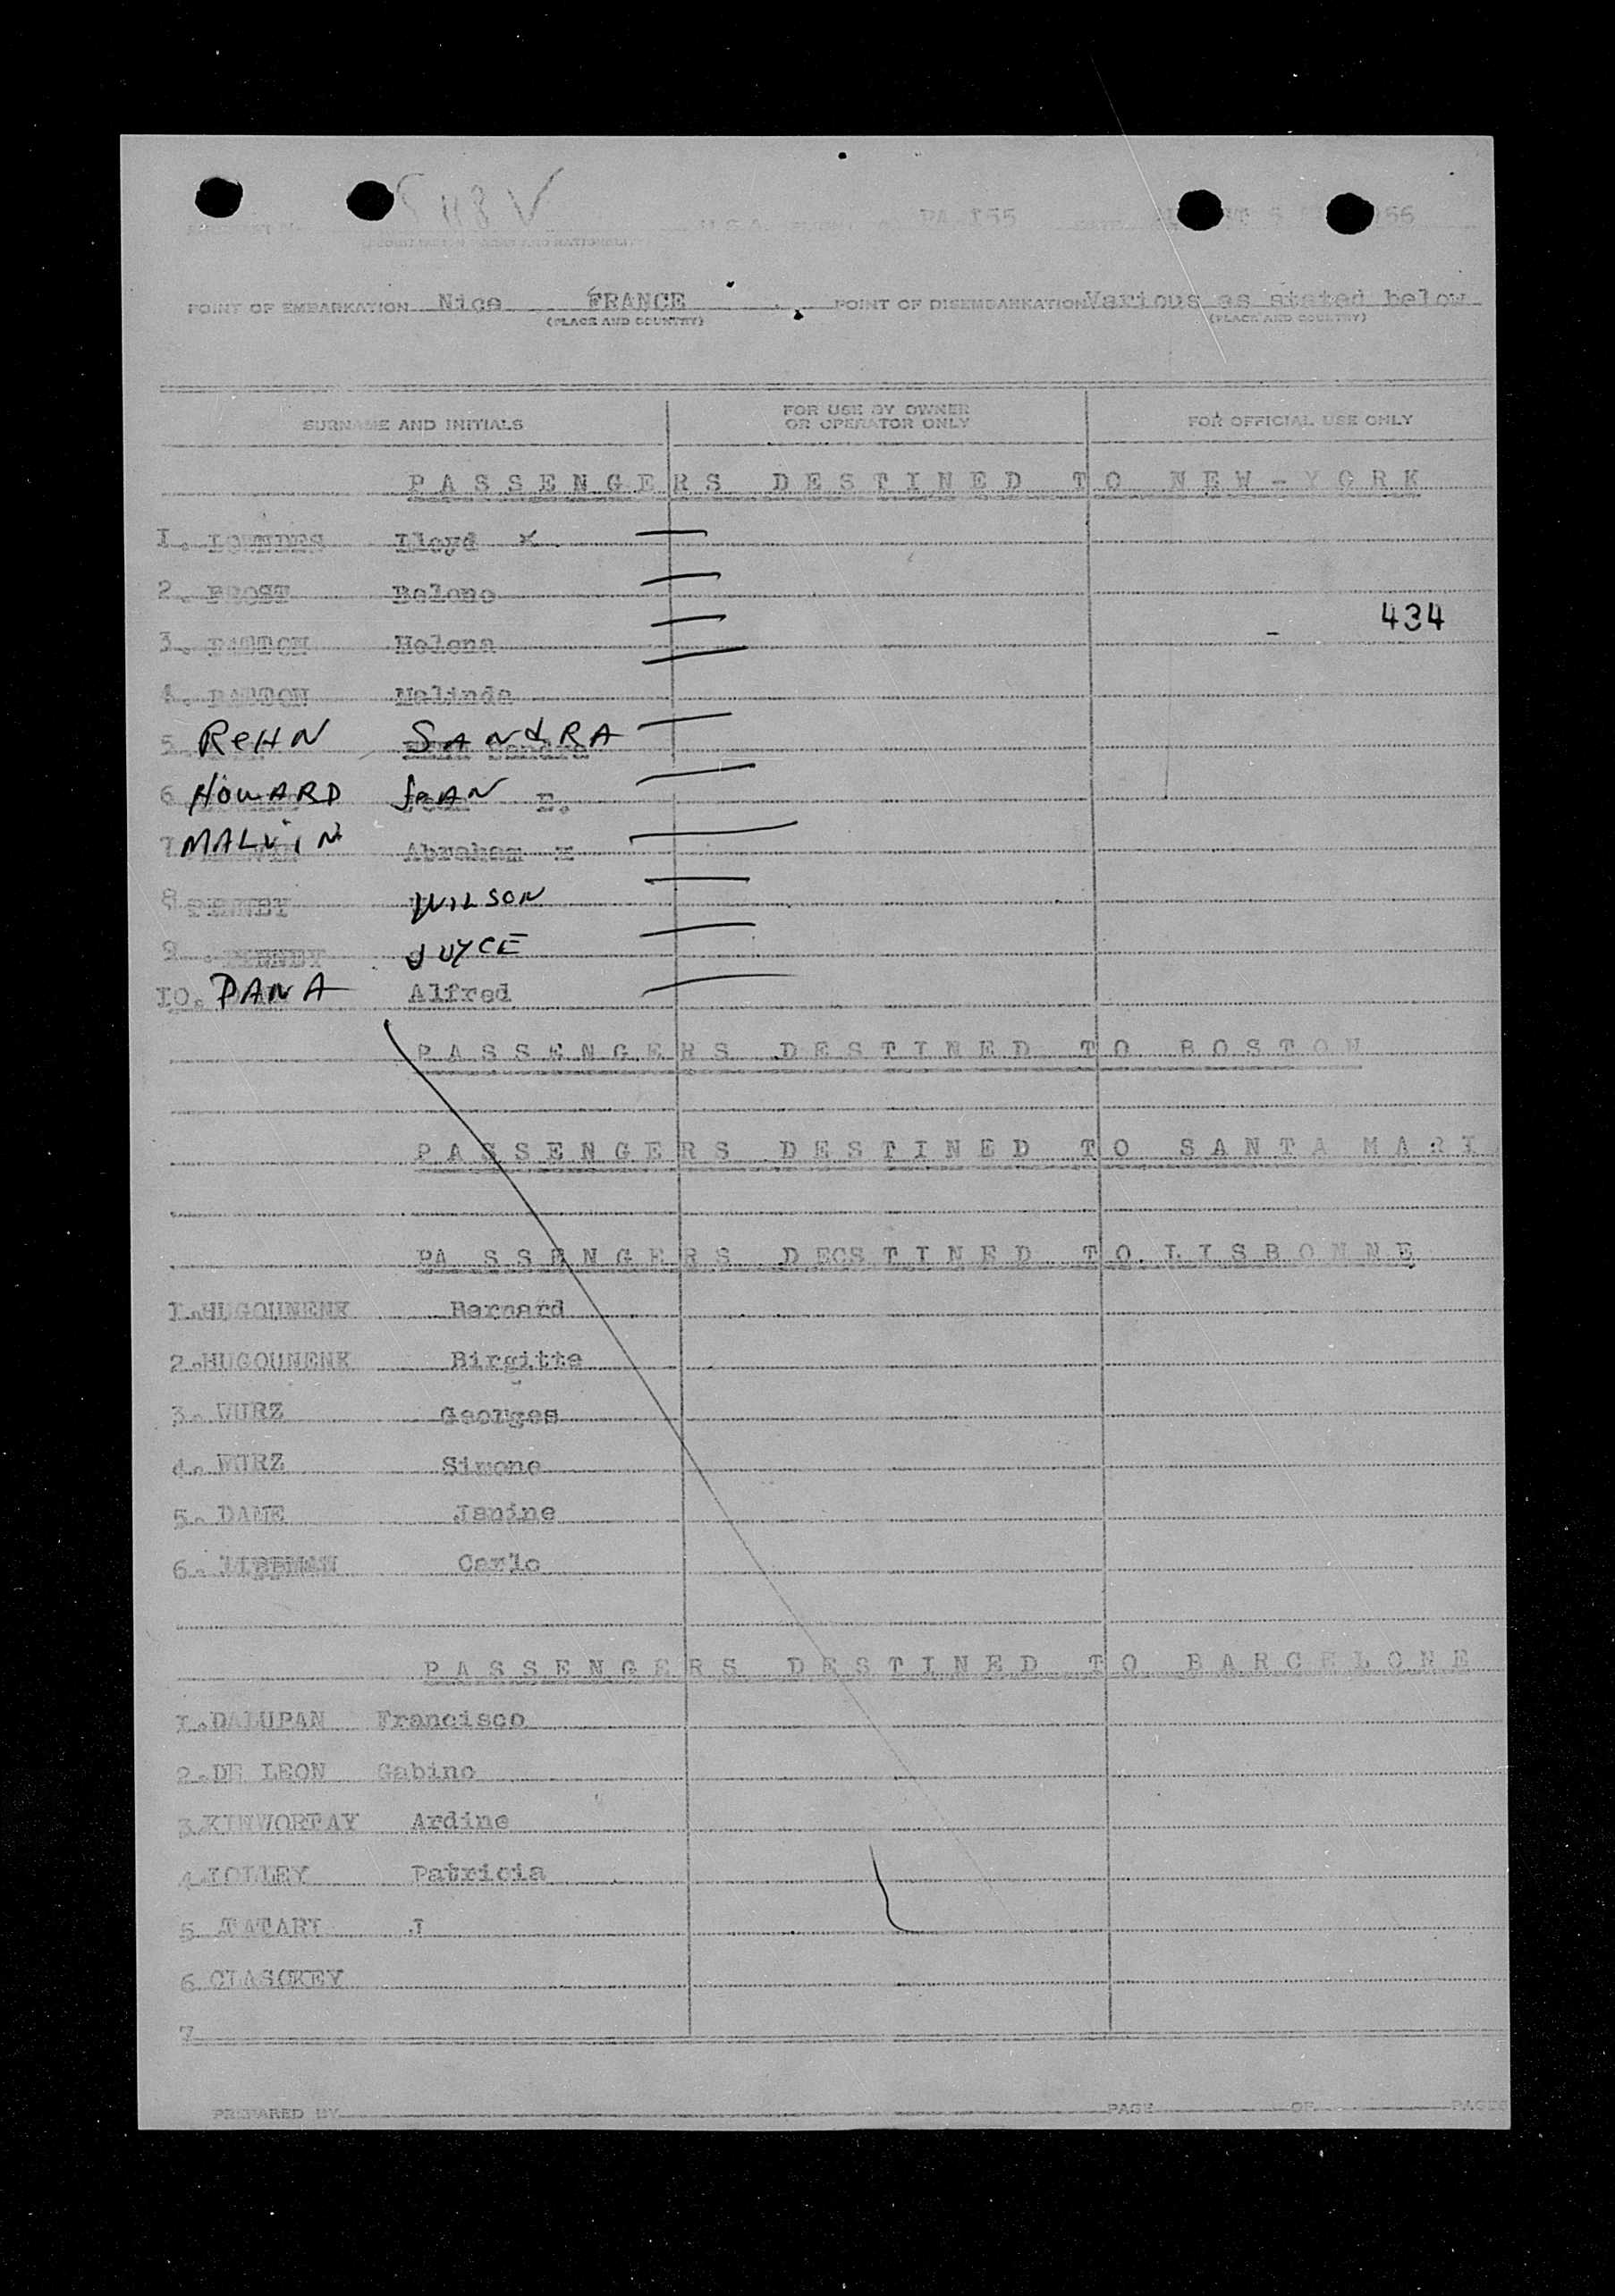 5118 V
U.S.A. PA 155
POINT OF EMBARKATION Nice FRANCE POINT OF DISEMBARKATION Various as stated below
(PLACE AND COUNTRY) (PLACE AND COUNTRY)
SURNAME AND INITIALS FOR USE BY OWNER OR OPERATOR ONLY FOR OFFICIAL USE ONLY
PASSENGERS DESTINED TO NEW-YORK
1. Lloyd x
2. FROST
434
3. Helena
4. Malinda
5 REHN SANdRA
6 HOWARD JeAN E.
7 MALViN Abraham x
8 WILSON
9. JOYCE
10. DANA Alfred
PASSENGERS DESTINED TO BOSTON
PASSENGERS DESTINED TO SANTA MARI
PA SSENGERS DECSTINED TO LISBONNE
1.HUGOUNENK Bernard
2.HUGOUNENK Birgitte
3. WURZ Georges
4. WURZ Simone
5. DAME Janine
6. Carlo
PASSENGERS DESTINED TO BARCELONE
1.DALUPAN Francisco
2.DE LEON Gabino
3 Ardine
4. Patricia
5 TATARI J
6
7
PREPARED BY PAGE OF PAGES